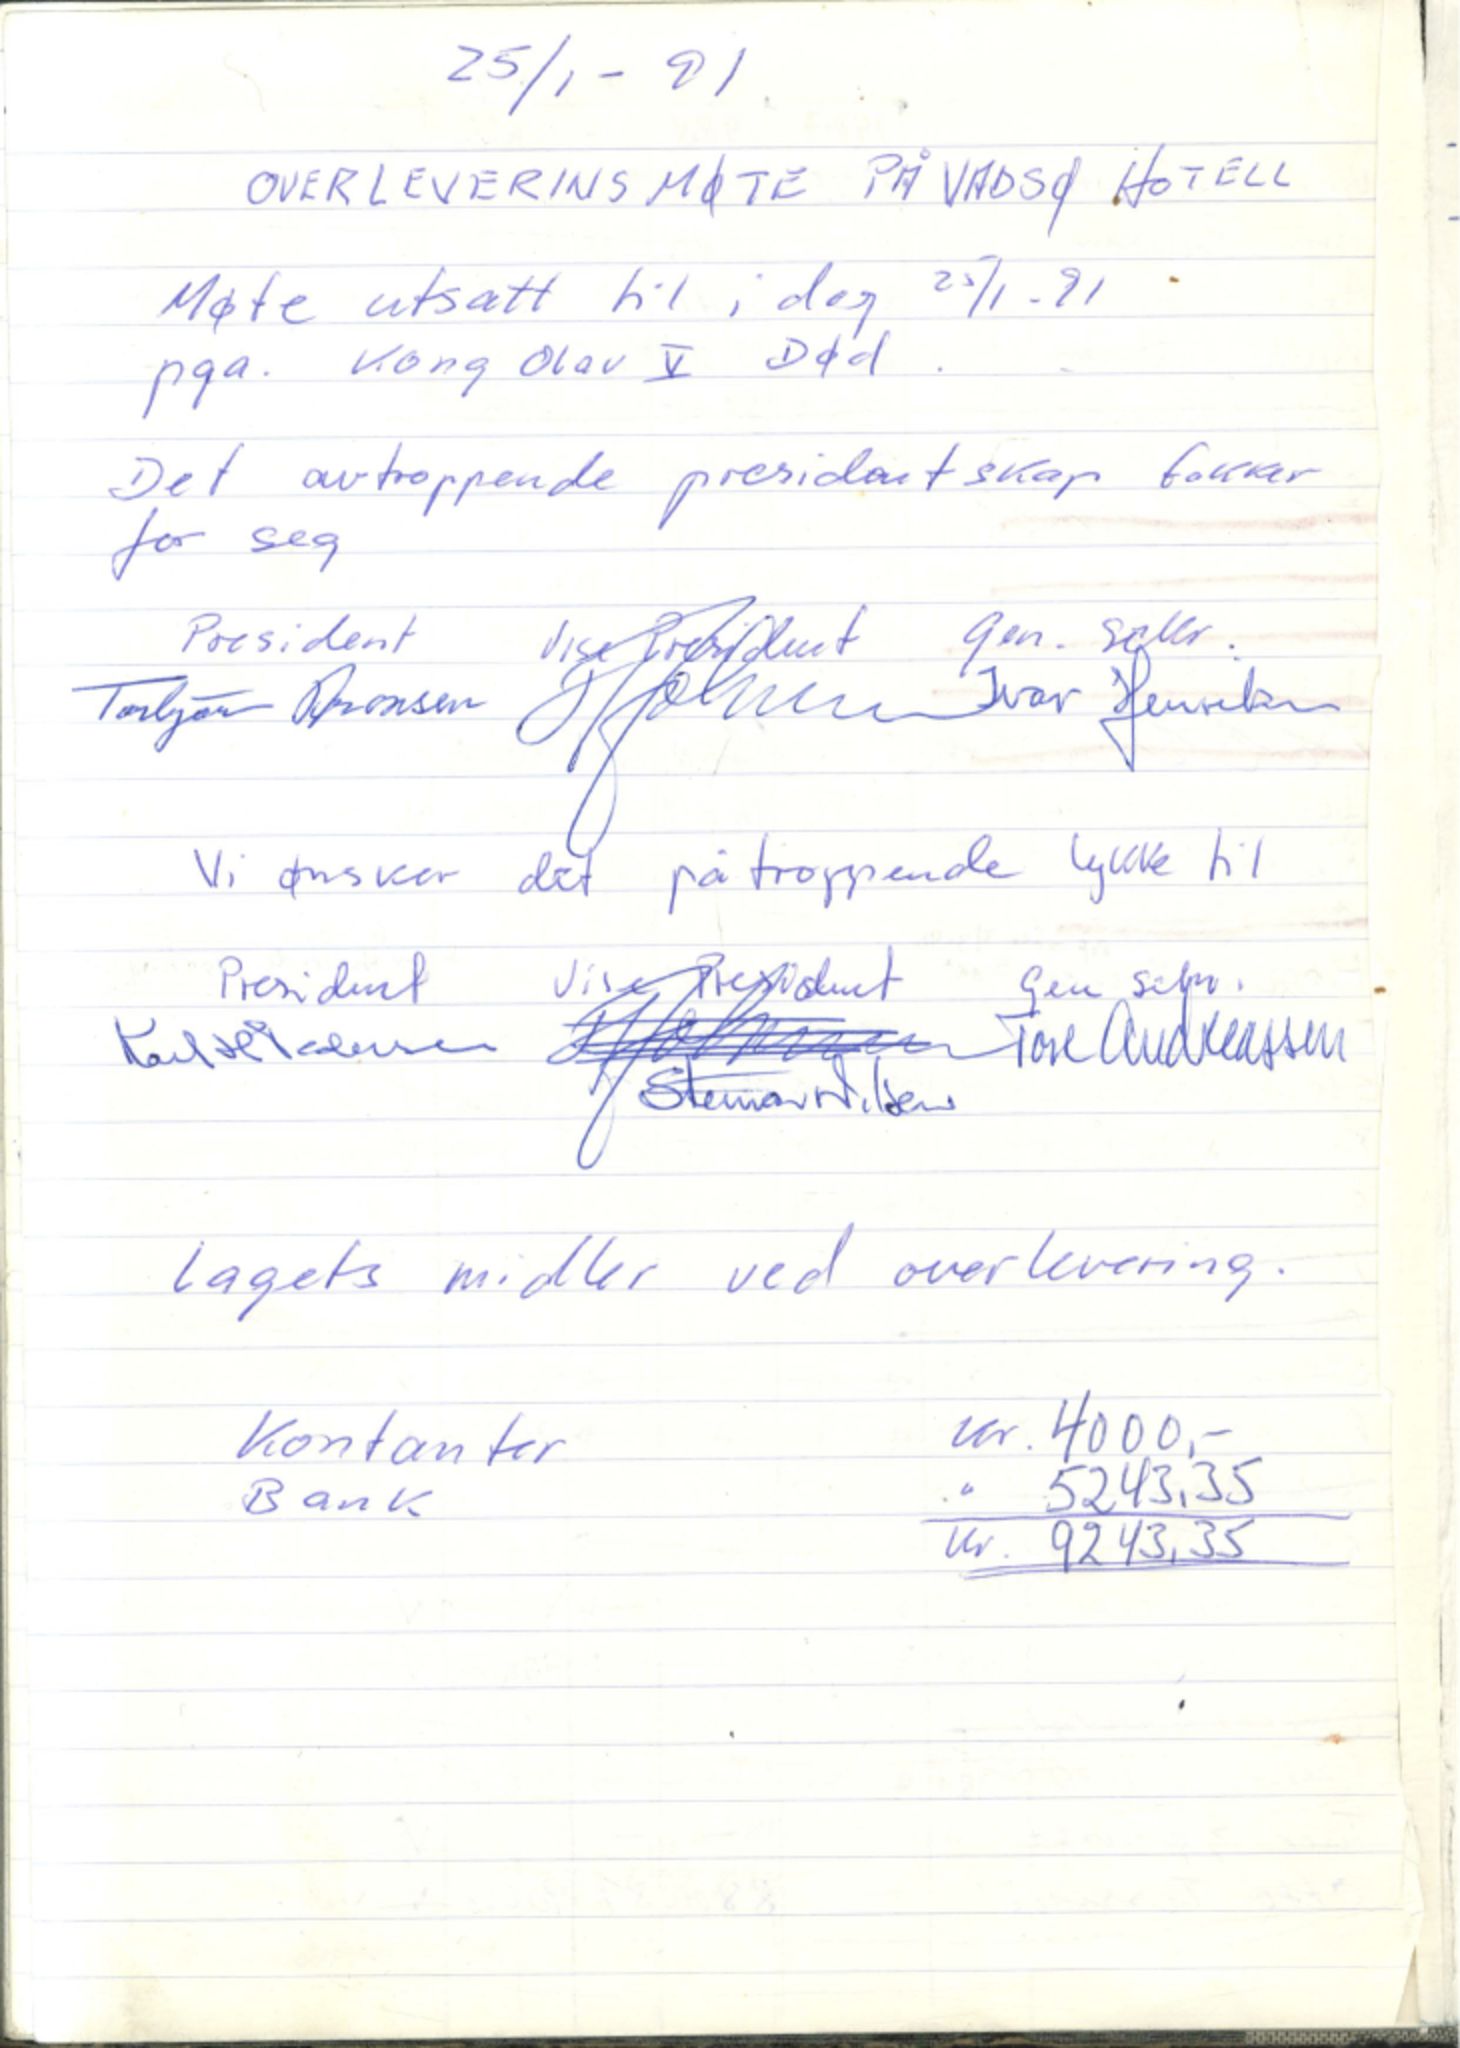 25/1 - 91
OVERLEVERINS MØTE PÅ VADSØ HOTELL
Møte utsatt til i dag 25/1 - 91
pga. Kong Olav V Død .
Det avtroppende presidentskap takker
for seg
President Vise President Gen. sekr.
Torbjørn Aronsen Ivar Henriksen
Vi ønsker det påtroppende lykke til
President Vise President Gen sekr.
Tore Andreassen
Steinar Nilsen
Lagets midler ved overlevering.
Kontanter kr. 4000,-
Bank " 5243,35
kr. 9243,35